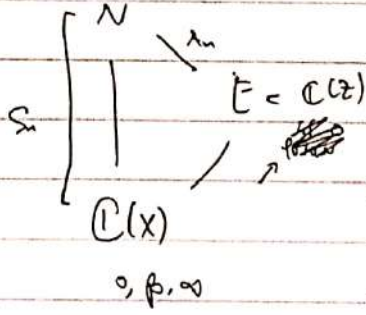 N
Sₙ
E = ℂ(z)
ℂ(X)
0, β, ∞